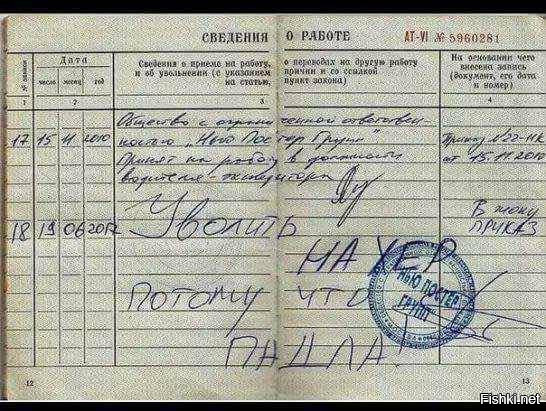 СВЕДЕНИЯ О РАБОТЕ AT-VI № 5960281
№ записи
Дата
число месяц год
Сведения о приеме на работу, о переводах на другую работу
и об увольнении (с указанием причин и со ссылкой
на статью, пункт закона)
На основании чего
внесена запись
(документ, его дата
и номер)
1 2 3 4
Общество с ограниченной ответствен-
ностью "Нью Постер Групп"
17 15 11 2010 Принят на работу в должности Приказ №22-НК
водителя-экспедитора от 15.11.2010
18 19 06 2017 Уволить В жопу
ПРИКАЗ
НАХЕР
ПОТОМУ ЧТО
ПАДЛА!
НЬЮ ПОСТЕР
ГРУПП
12 13
Fishki.net